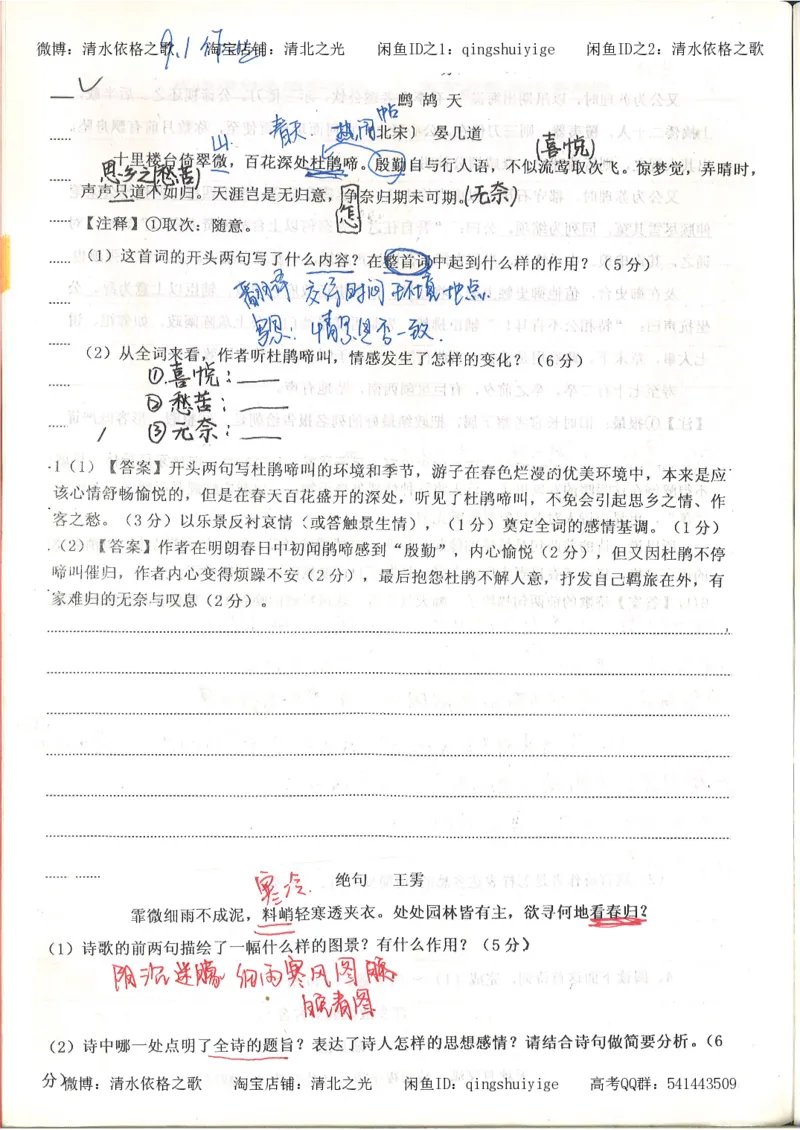 微博：清水依格之歌 淘宝店铺：清北之光 闲鱼ID之1：qingshuiyige 闲鱼ID之2：清水依格之歌
9.1 作业
鹧鸪天
山. 春天. 热闹 帖
（北宋）晏几道
（喜悦）
十里楼台倚翠微，百花深处杜鹃啼。殷勤自与行人语，不似流莺取次飞。惊梦觉，弄晴时，
思乡之（愁苦）
声声只道不如归。天涯岂是无归意，争奈归期未可期。（无奈）
怎
【注释】①取次：随意。
（1）这首词的开头两句写了什么内容？在整首词中起到什么样的作用？（5分）
翻译 交待时间 环境 地点.
景. 情景是否一致.
（2）从全词来看，作者听杜鹃啼叫，情感发生了怎样的变化？（6分）
①.喜悦：
② 愁苦：
③无奈：
1（1）【答案】开头两句写杜鹃啼叫的环境和季节，游子在春色烂漫的优美环境中，本来是应
该心情舒畅愉悦的，但是在春天百花盛开的深处，听见了杜鹃啼叫，不免会引起思乡之情、作
客之愁。（3分）以乐景反衬哀情（或答触景生情），（1分）奠定全词的感情基调。（1分）
（2）【答案】作者在明朗春日中初闻鹃啼感到“殷勤”，内心愉悦（2分），但又因杜鹃不停
啼叫催归，作者内心变得烦躁不安（2分），最后抱怨杜鹃不解人意，抒发自己羁旅在外，有
家难归的无奈与叹息（2分）。
寒冷.
绝句 王雱
霏微细雨不成泥，料峭轻寒透夹衣。处处园林皆有主，欲寻何地看春归？
（1）诗歌的前两句描绘了一幅什么样的图景？有什么作用？（5分）
阴沉迷朦 细雨寒风图
（2）诗中哪一处点明了全诗的题旨？表达了诗人怎样的思想感情？请结合诗句做简要分析。（6
分）
微博：清水依格之歌 淘宝店铺：清北之光 闲鱼ID：qingshuiyige 高考QQ群：541443509